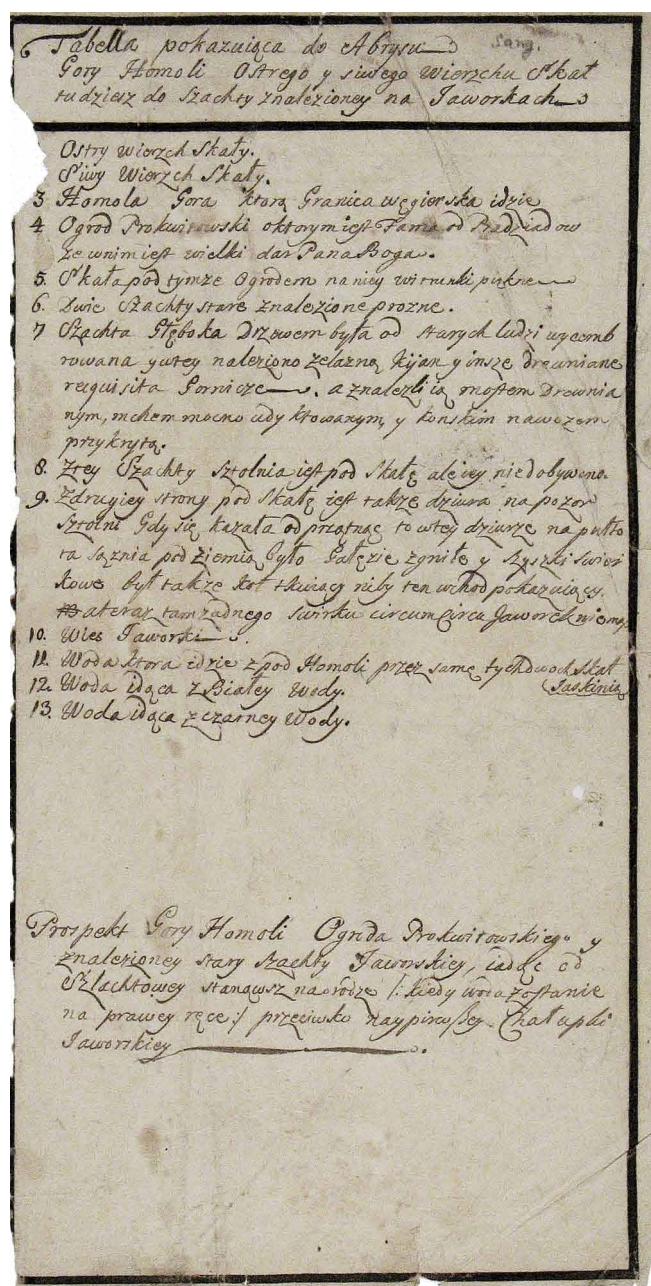 Tabella pokazuiąca do Abrysu
Gory Homoli Ostrego y siwego Wierzchu Skał
tudziesz do Szachty znalezioney na Jaworkach
Ostry wierzch Skały.
Siwy Wierzch Skały.
3 Homola Gora ktorą Granica węgierska idzie
4 Ogrod Prokwitowski o ktorym iest Fama od Pradziadow
ze wnim iest wielki dar Pana Boga.
5. Skała pod tymze Ogrodem na niey wizerunki piękne
6. Dwie Szachty stare znalezione prozne.
7 Szachta Głęboka Drzewem była od starych ludzi wycemb
rowana y wtey naleziono zelazną Kijan y insze drewniane
requisita Gornicze. a znalezli ią mostem Drewnia
nym, mchem mocno udyktowanym, y konskim nawozem
przykrytą.
8. Ztey Szachty sztolnia iest pod Skałę ale iey niedobywano.
9. Zdrugiey strony pod Skałę iest takze dziura na pozor
Sztolni Gdy się kazała odprzątnąć to wtey dziurze na pułto
ra sążnia pod ziemią było Gałęzie zgniłe y Szyszki swier
kowe był takze koł tkwiący niby ten wchod pokazuiący.
a teraz tam zadnego swirku circum Circa Jaworek niemasz
10. Wies Jaworki.
11. Woda ktora idzie z pod Homoli przez samę tych dwoch Skał
Jaskinią
12. Woda idąca z Białey Wody.
13. Woda idąca z czarney Wody.
Prospekt Gory Homoli Ogroda Prokwitowskiego y
znalezioney stary Szachty Jaworskiey, iadąc od
Szlachtowey stanąwsz na drodze /: kiedy woda zostanie
na prawey ręce :/ przeciwko naypirwszey Chałupki
Jaworskiey